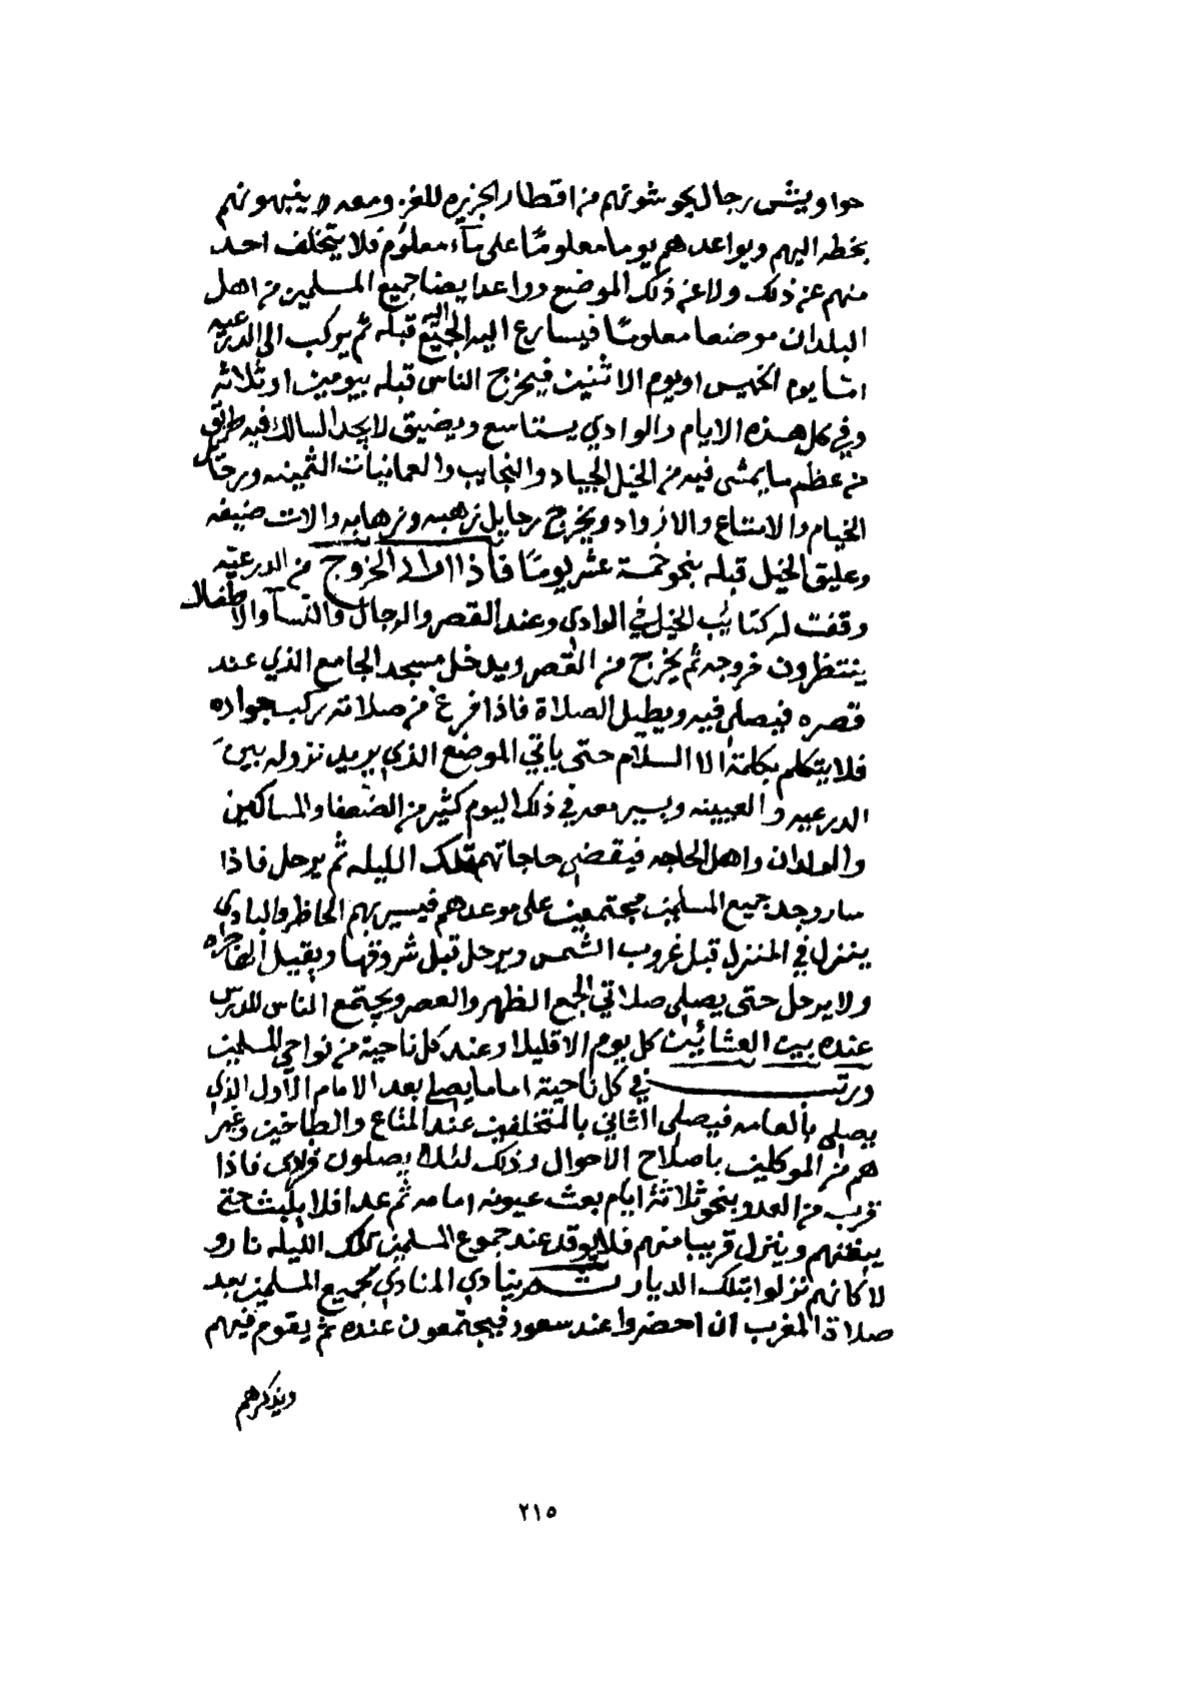 حواويش رجال يحوشونهم من اقطار الجزيره للغزو معه وينبهونهم
بخطه اليهم ويواعدهم يوما معلومًا على مآء معلوم فلا يتخلف احد
منهم عن ذلك ولا عن ذلك الموضع وواعد ايضا جميع المسلمين من اهل
البلدان موضعا معلومًا فيسارع اليه الجميع اليه قبله ثم يركب الى الدرعيه
امّا يوم الخميس او يوم الاثنين فيخرج الناس قبله بيومين او ثلاثه
وفي كل هذه الايام والوادي يستناسع ويضيق لا يجد السالك فيه طريق
من عظم ما يمشي فيه من الخيل الجياد والنجايب والعمانيات الثمينه ورحايل
الخيام والامتاع والازواد ويخرج رحايل زهبه وزهابه والات ضيفه
وعليق الخيل قبله بنحو خمسة عشر يومًا فاذا اراد الخروج من الدرعيّه
وقفت له كتائب الخيل في الوادي وعند القصر والرجال والنسآ والاطفال
ينتظرون خروجه ثم يخرج من القصر ويدخل مسجد الجامع الذي عند
قصره فيصلي فيه ويطيل الصلاة فاذا فرغ من صلاته ركب جواده
فلا يتكلم بكلمة الا السلام حتى ياتي الموضع الذي يريد نزوله بين
الدرعيه والعيينه ويسير معه في ذلك اليوم كثير من الضعفا والمساكين
والولدان واهل الحاجه فيقضي حاجاتهم تلك الليله ثم يرحل فاذا
سار وجد جميع المسلمين مجتمعين على موعدهم فيسير بهم الحاظر والبادي
ينزل في المنزل قبل غروب الشمس ويرحل قبل شروقها ويقيل الهاجره
ولا يرحل حتى يصلي صلاتي الجمع الظهر والعصر ويجتمع الناس للدرس
عنده بين العشائين كل يوم الا قليلا وعند كل ناحية من نواحي المسلمين
ورتب في كل ناحية اماما يصلي بعد الامام الأول الذي
يصلي بالعامه فيصلي الثاني بالمتخلفين عند المتاع والطباخين وغير
هم من الموكلين باصلاح الاحوال وذلك لئلا يصلون فرادى فاذا
قرب من العدو بنحو ثلاثة ايام بعث عيونه امامه ثم عدا فلا يلبث حتى
يبغتهم وينزل قريبا منهم فلا يوقد عند جموع المسلمين تلك الليله نار و
لا كانهم نزلوا بتلك الديار ثم ينادي المنادي لجميع المسلمين بعد
صلاة المغرب ان احضروا عند سعود فيجتمعون عنده ثم يقوم فيهم
ويذكرهم
٢١٥